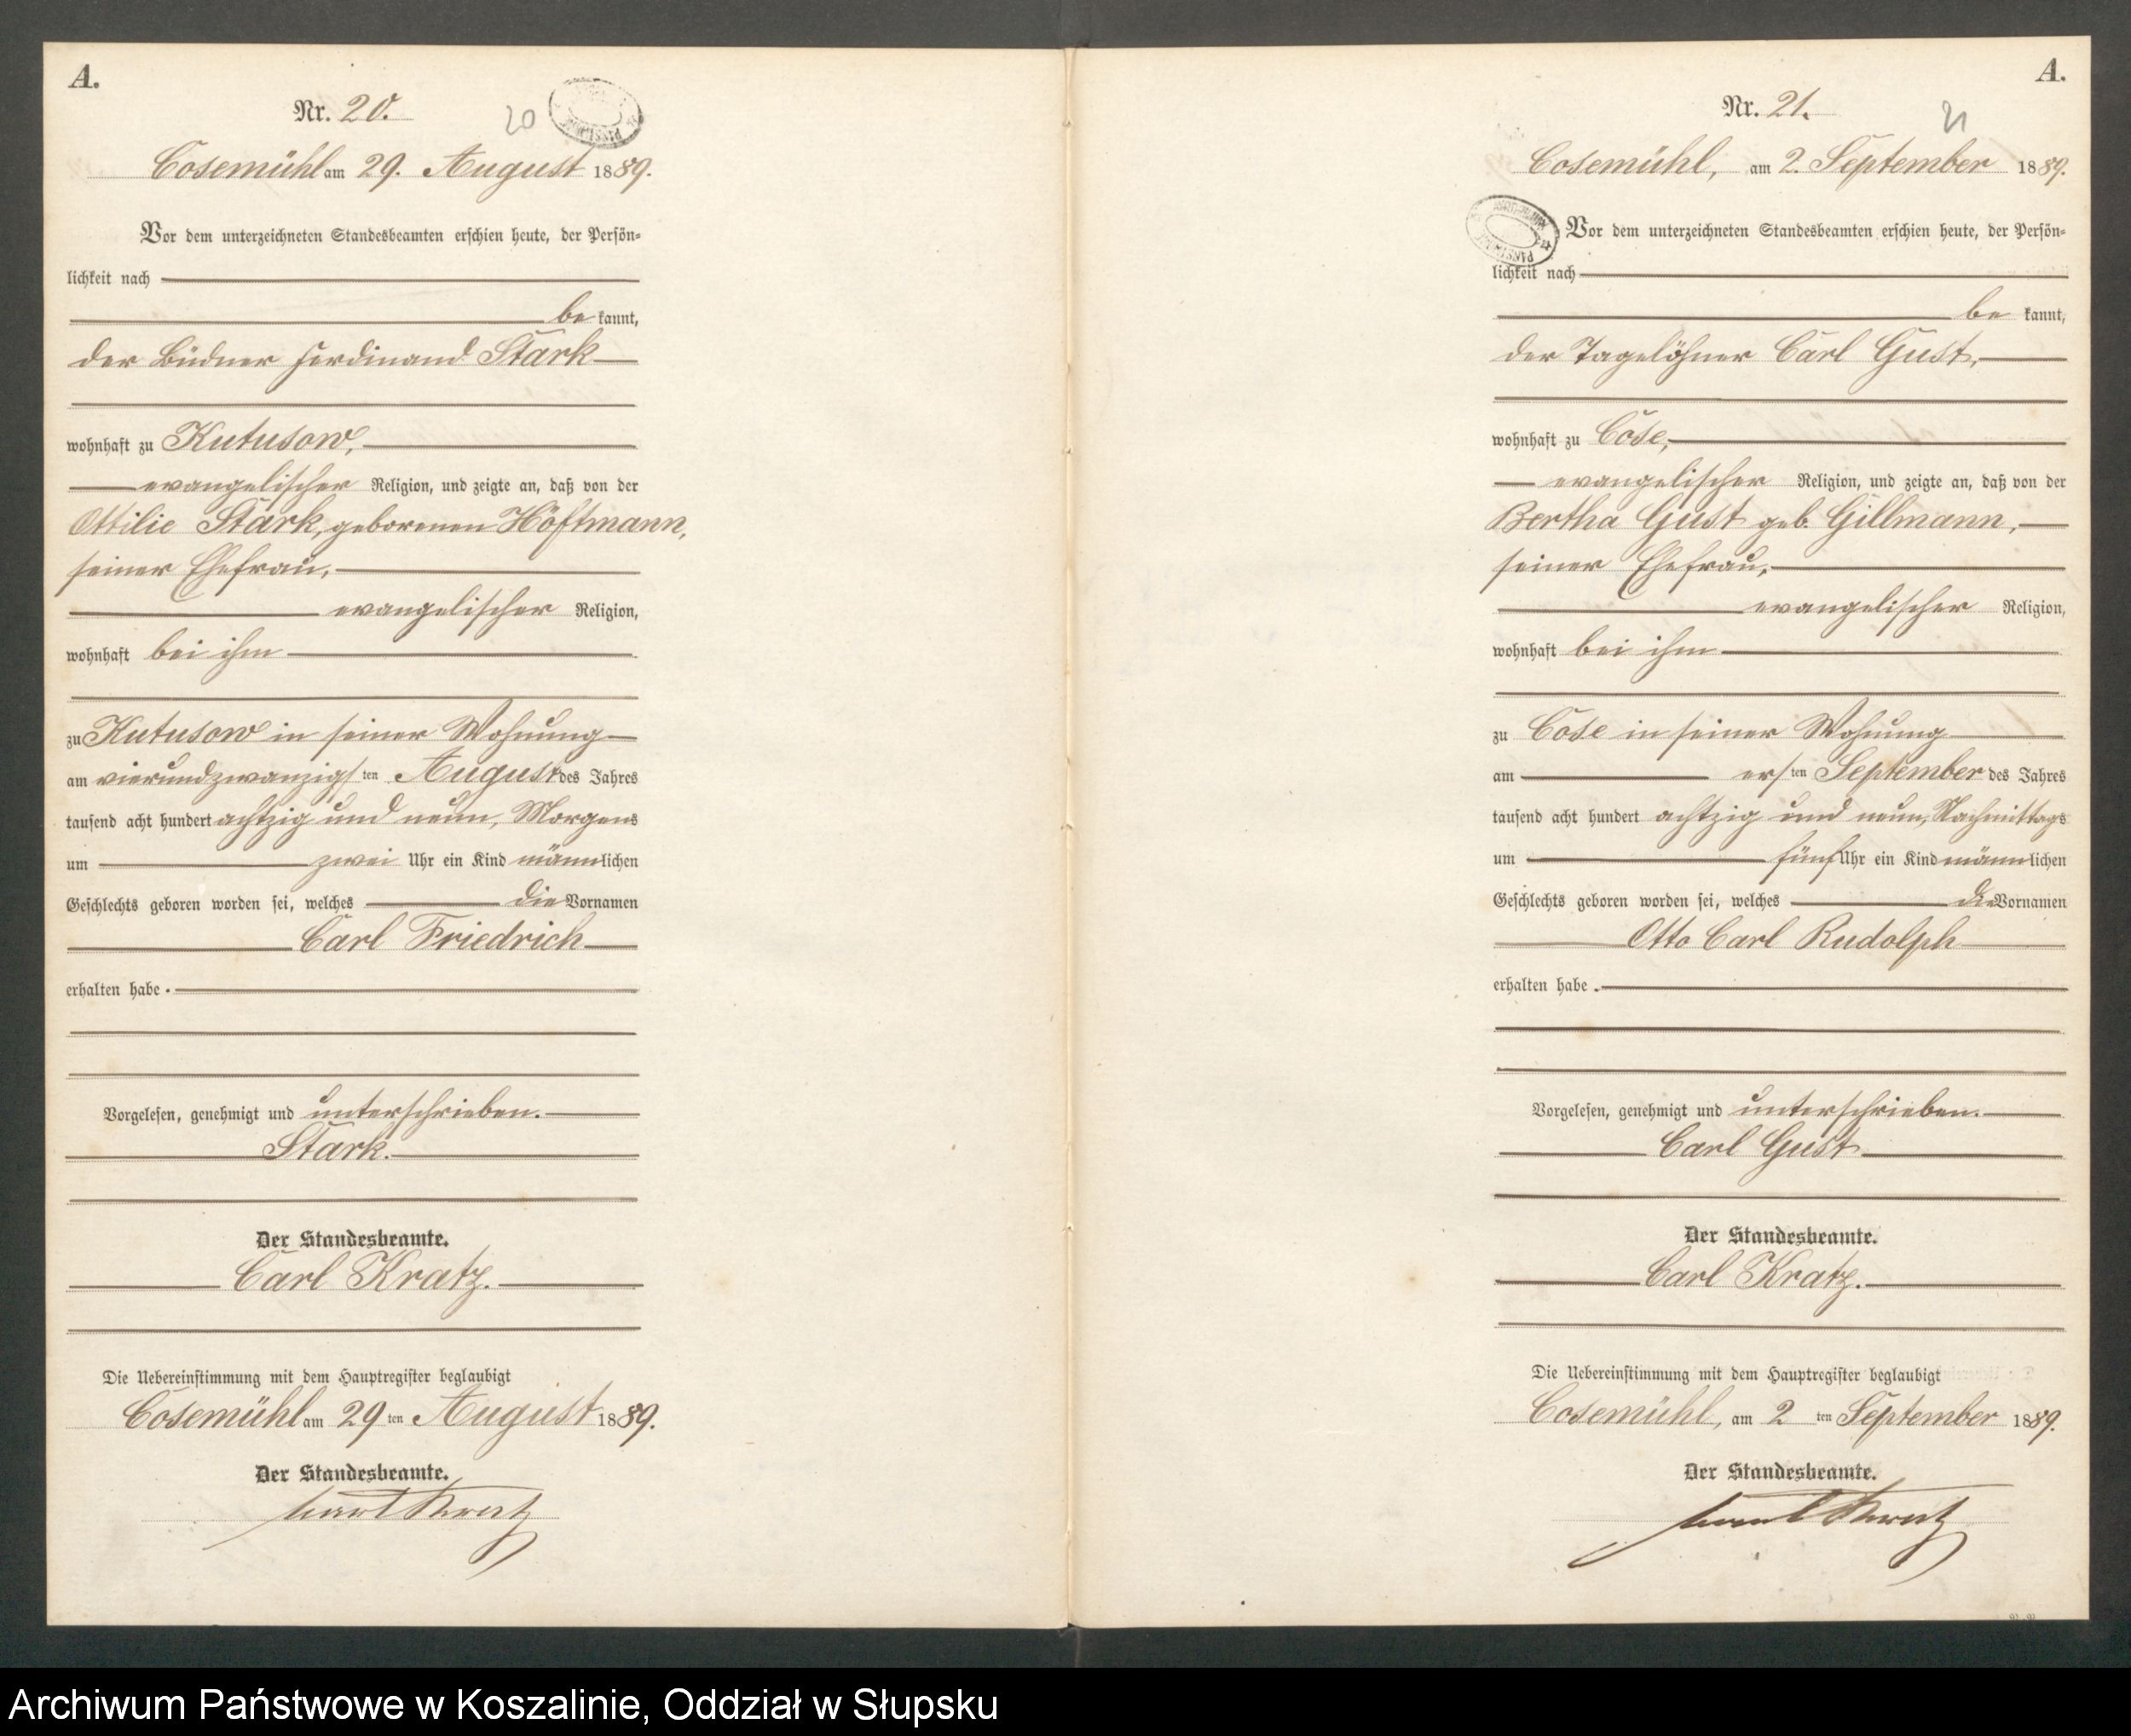 A.
Nr. 20.
20
Cosemühl am 29. August 1889.
Vor dem unterzeichneten Standesbeamten erschien heute, der Persön-
lichkeit nach
be kannt,
der Büdner Ferdinand Stark
wohnhaft zu Kutusow,
evangelischer Religion, und zeigte an, daß von der
Ottilie Stark, geborenen Höftmann,
seiner Ehefrau,
evangelischer Religion,
wohnhaft bei ihm
zu Kutusow in seiner Wohnung
am vierundzwanzigs ten August des Jahres
tausend acht hundert achtzig und neun, Morgens
um zwei Uhr ein Kind männlichen
Geschlechts geboren worden sei, welches die Vornamen
Carl Friedrich
erhalten habe.
Vorgelesen, genehmigt und unterschrieben.
Stark.
Der Standesbeamte.
Carl Kratz.
Die Uebereinstimmung mit dem Hauptregister beglaubigt
Cosemühl am 29 ten August 1889.
Der Standesbeamte.
Carl Kratz
A.
Nr. 21.
21
Cosemühl, am 2. September 1889.
Vor dem unterzeichneten Standesbeamten erschien heute, der Persön-
lichkeit nach
be kannt,
der Tagelöhner Carl Gust,
wohnhaft zu Cose,
evangelischer Religion, und zeigte an, daß von der
Bertha Gust geb. Gillmann,
seiner Ehefrau,
evangelischer Religion,
wohnhaft bei ihm
zu Cose in seiner Wohnung
am ers ten September des Jahres
tausend acht hundert achtzig und neun, Nachmittags
um fünf Uhr ein Kind männlichen
Geschlechts geboren worden sei, welches die Vornamen
Otto Carl Rudolph
erhalten habe.
Vorgelesen, genehmigt und unterschrieben.
Carl Gust
Der Standesbeamte.
Carl Kratz.
Die Uebereinstimmung mit dem Hauptregister beglaubigt
Cosemühl, am 2 ten September 1889.
Der Standesbeamte.
Carl Kratz
Archiwum Państwowe w Koszalinie, Oddział w Słupsku